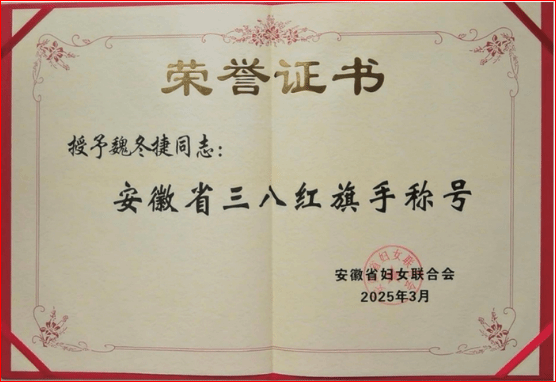 荣誉证书
授予魏冬捷同志：
安徽省三八红旗手称号
安徽省妇女联合会
2025年3月